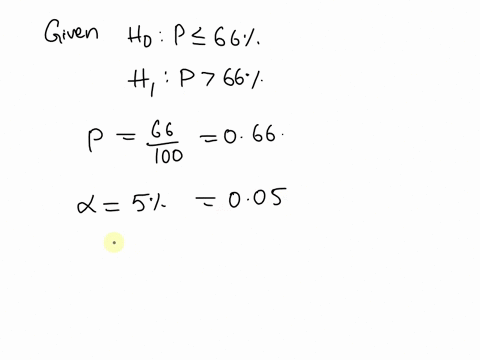 Given H0 : P ≤ 66%.
H1 : P > 66%
P = 66/100 = 0.66.
α = 5% = 0.05